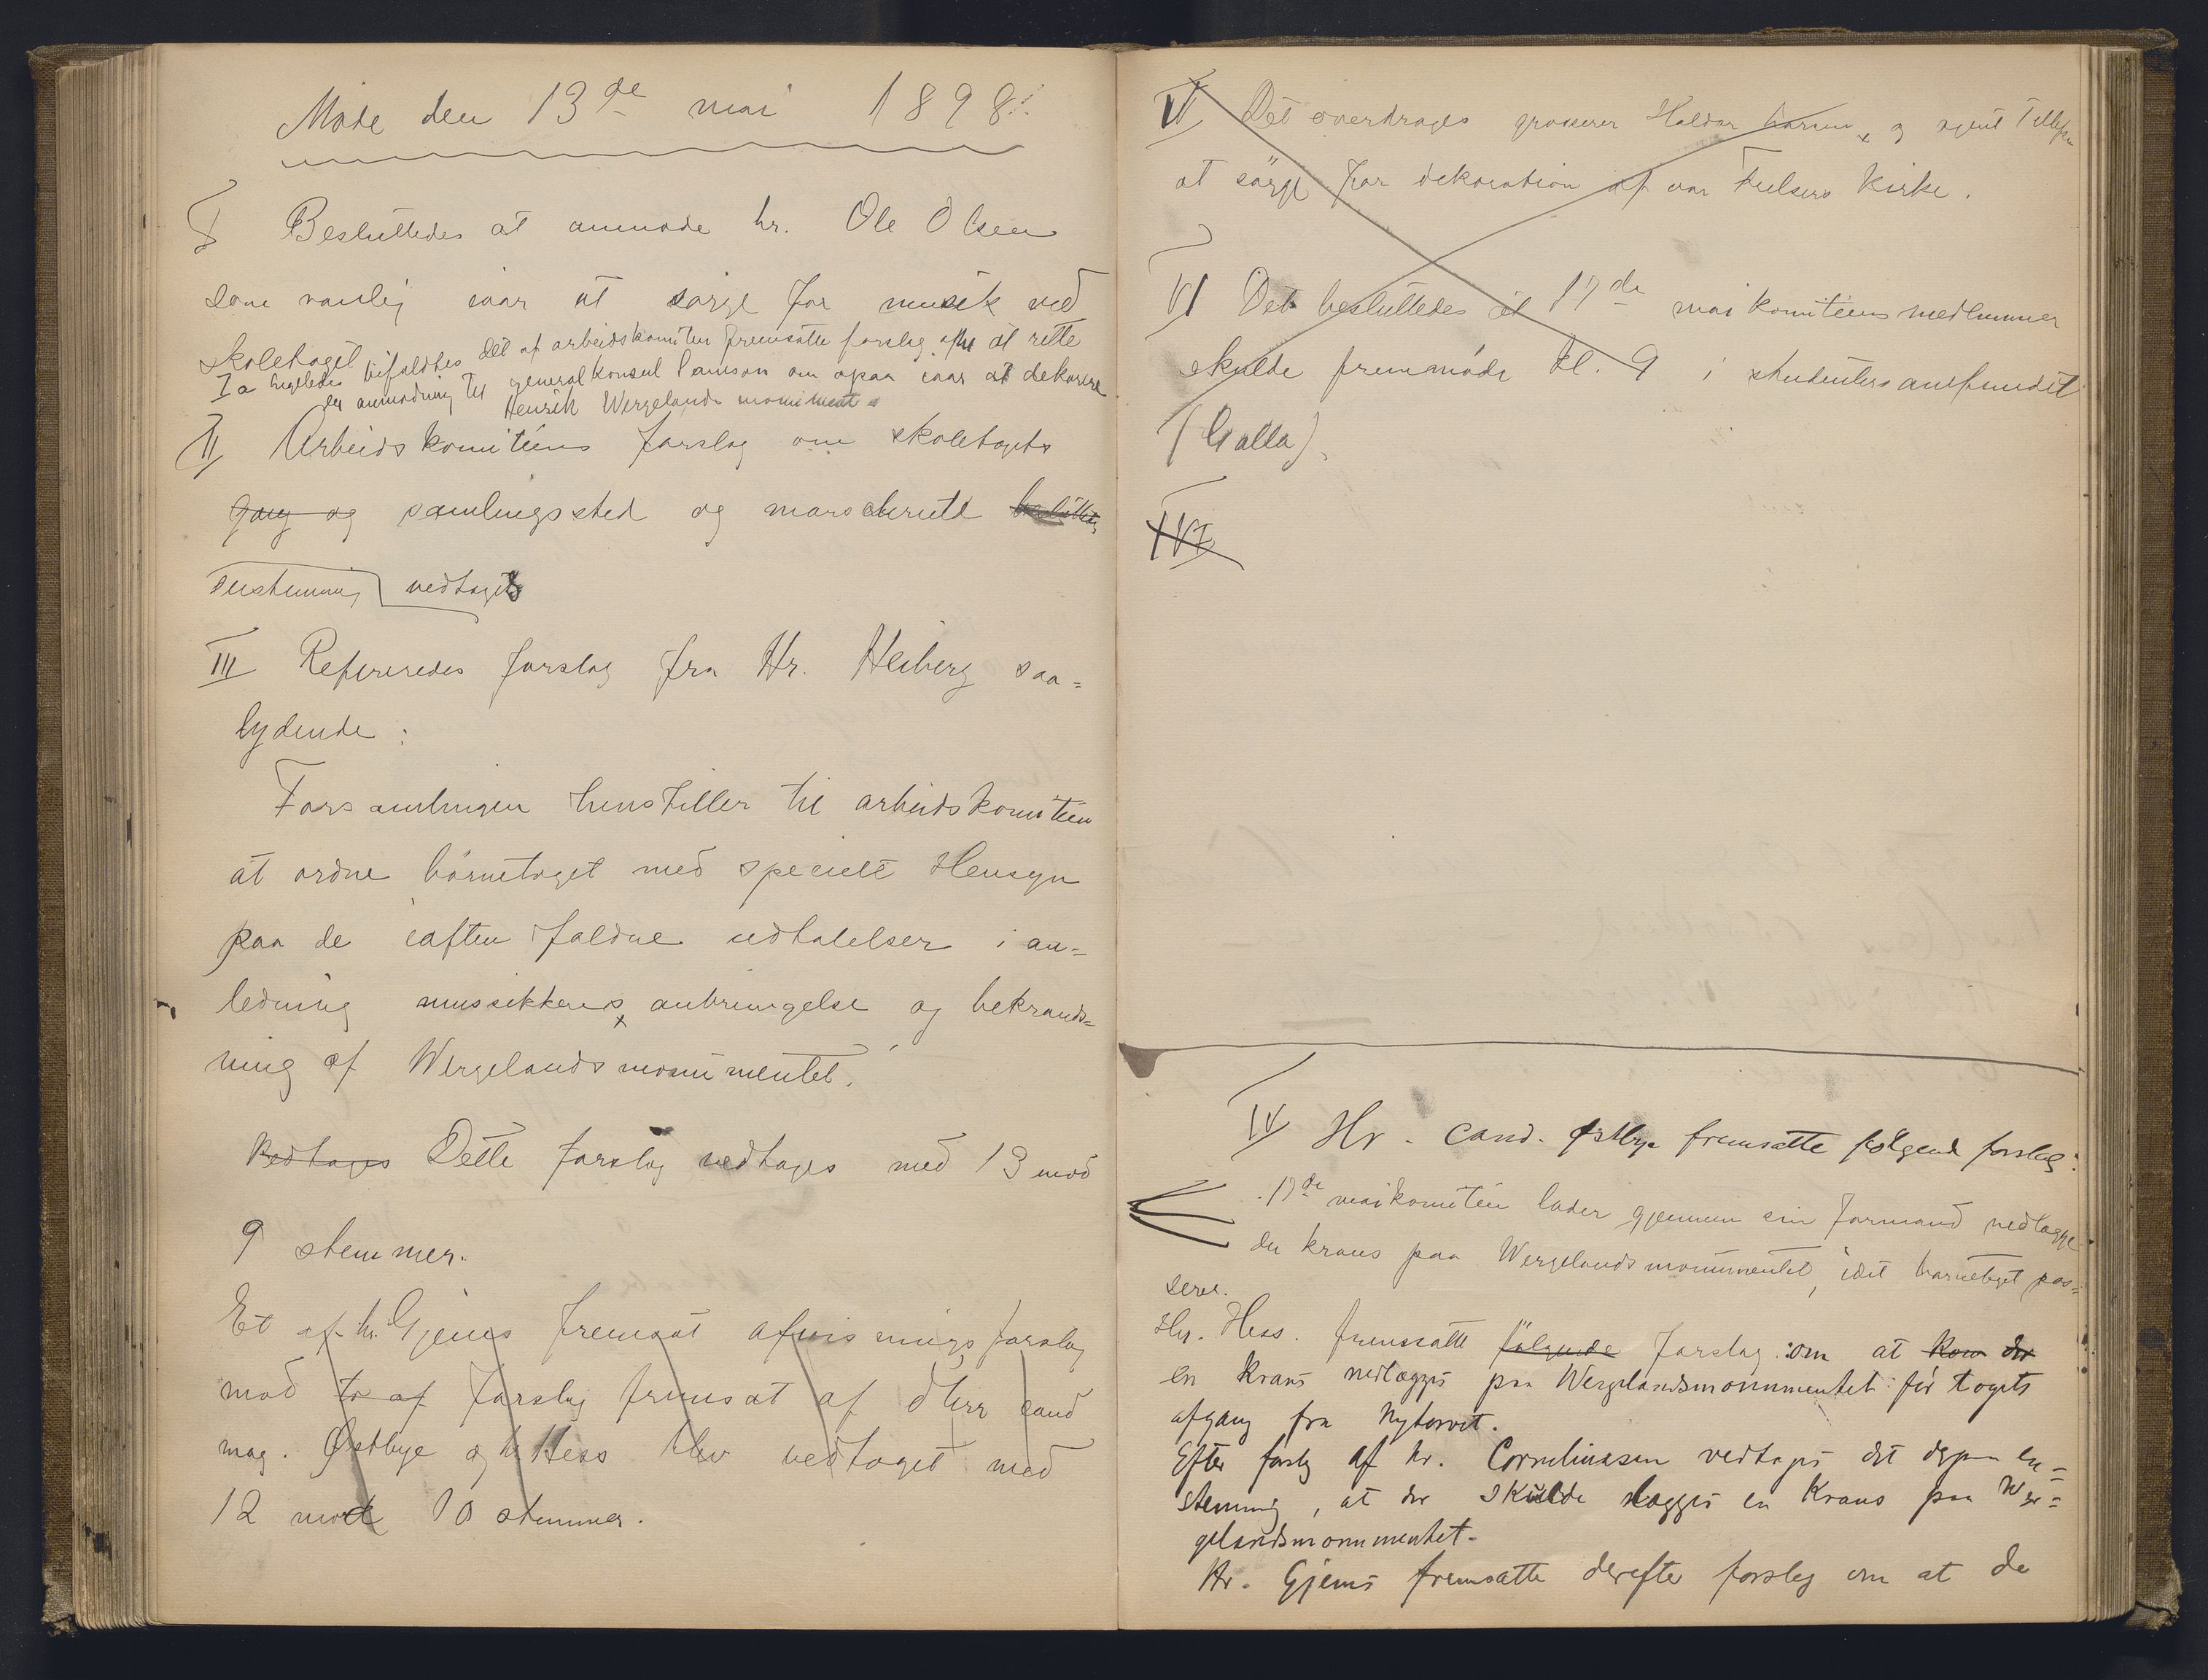 Møde den 13de mai 1898.
I Besluttedes at anmode hr. Ole Olsen
som vanlig iaar at sørge for musik ved
skoletoget
Ia Ligeledes bifaldtes det af arbeidskomiteen fremsatte forslag at rette
en anmodning til generalkonsul om ogsaa iaar at dekorere
Henrik Wergelands moniment
II Arbeidskomiteens forslag om skoletogets
gang og samlingssted og marschrute besluttedes
enstemmig vedtoges
III Refereredes forslag fra Hr. Heiberg saa=
lydende:
Forsamlingen henstiller til arbeidskomiteen
at ordne børnetoget med specielt Hensyn
paa de iaften faldne udtalelser i an=
ledning mussikkens anbringelse og bekrands=
ning af Wergelandsmonumentet.
Vedtoges Dette forslag vedtoges med 13 mod
9 stemmer.
Et af hr. Gjems fremsat afvisningsforslag
mod to af forslag fremsat af d'herr cand
mag. Østbye og hr Hess blev vedtaget med
12 mod 10 stemmer.
VI Det overdrages grosserer Haldor og agent Tellefsen
at sørge for dekoration af vor Frelsers Kirke.
VI Det besluttedes at 17de maikomiteens medlemmer
skulde fremmøde kl. 9 i studentersamfundet
(Galla).
IVI
IV Hr. cand. Østbye fremsatte følgende forslag:
17de maikomiteen lader gjennem sin formand nedlægge
en krans paa Wergelandsmonumentet, idet barnetoget pas=
serer.
Hr. Hess. fremsatte følgende forslag: om at kom der
en krans nedlægges paa Wergelandsmonumentet før togets
afgang fra Nytorvet.
Efter forslag af hr. Corneliussen vedtoges det en=
stemmig, at der skulde lægges en Krans paa Wer=
gelandsmonumentet.
Hr. Gjems fremsatte derefter forslag om at de